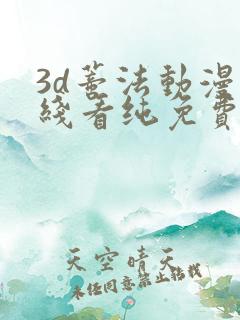 3d善法動漫
綫看純免費
天空晴天
未经同意禁止转载